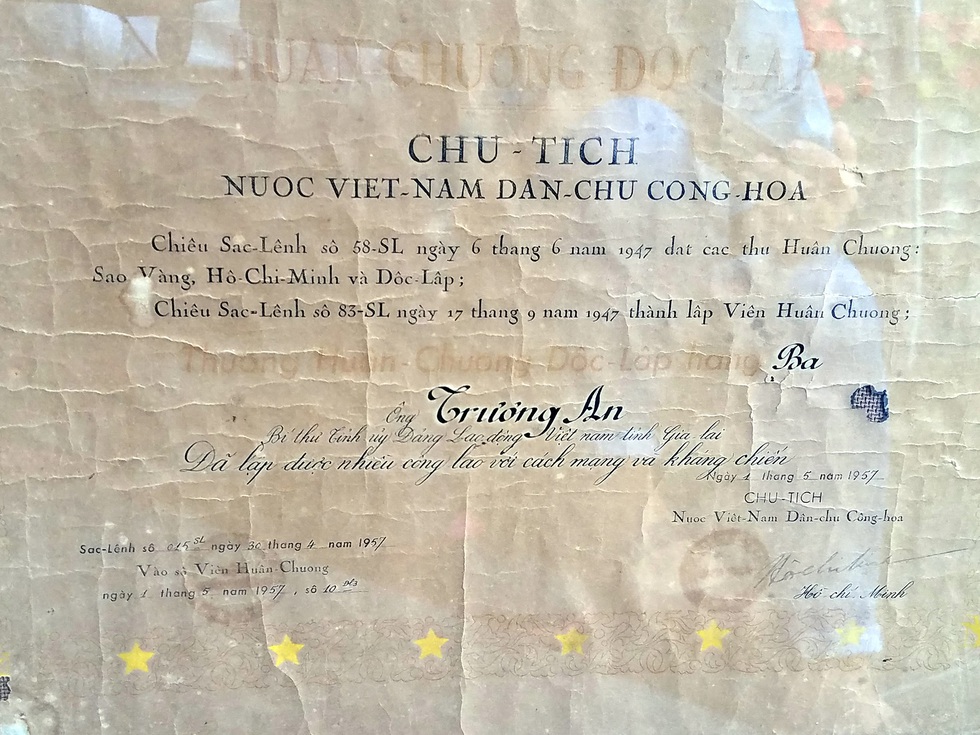 HUAN CHUONG ĐOC LAP
CHU-TICH
NUOC VIET-NAM DAN-CHU CONG-HOA
Chiêu Sac-Lênh sô 58-SL ngày 6 thang 6 nam 1947 dat cac thu Huân Chuong:
Sao Vàng, Hô-Chi-Minh và Dôc-Lâp;
Chiêu Sac-Lênh sô 83-SL ngày 17 thang 9 nam 1947 thành lâp Viên Huân Chuong;
Thuong Huân-Chuong Dôc-Lâp hang Ba
Ông Trương An
Bí thư Tỉnh ủy Đảng Lao động Việt nam tỉnh Gia lai
Đã lập được nhiều công lao với cách mạng và kháng chiến
Ngày 1 thang 5 nam 1957
CHU-TICH
Nuoc Viêt-Nam Dân-chu Công-hoa
Sac-Lênh sô 015 SL ngày 30 thang 4 nam 1957
Vào sô Viên Huân-Chuong
ngày 1 thang 5 nam 1957, sô 10
Hồ chí Minh